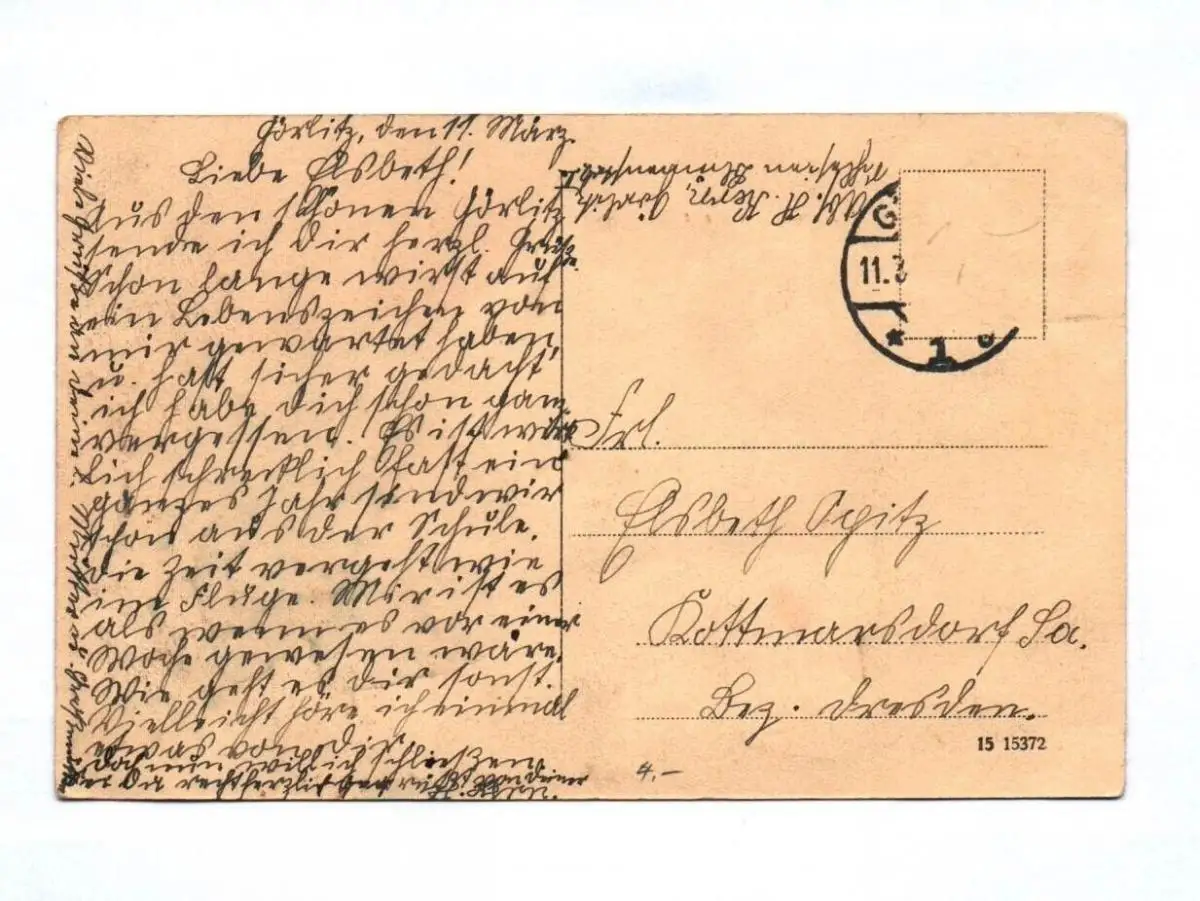 Görlitz, den 11. März.
Liebe Elsbeth!
Aus den schönen Görlitz
sende ich Dir herzl. Grüsse.
Schon lange wirst auf
ein Lebenszeichen von
mir gewartet haben,
u. hast sicher gedacht
ich habe dich schon ganz
vergessen. Es ist wirk
lich schrecklich fast ein
ganzes Jahr sind wir
schon aus der Schule.
Die Zeit vergeht wie
im Fluge. Mir ist es
als wenn es vor einer
Woche gewesen wäre.
Wie geht es Dir sonst.
Vielleicht höre ich einmal
etwas von dir.
Doch nun will ich schliessen
recht herzlich gegrüsst von deiner
Viele Grüsse an deine l. Mutter u. Grossmutter
Abs. H. Görlitz
G
11.3
* 1
Frl.
Elsbeth Opitz
Kottmarsdorf Sa.
Bez. Dresden.
15 15372
4,–